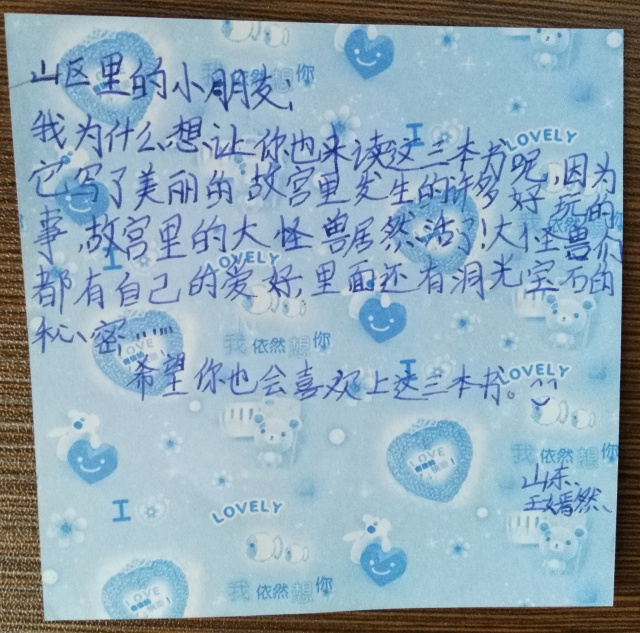 山区里的小朋友,
我为什么想让你也来读这三本书呢,因为
它写了美丽的故宫里发生的许多好玩的
事,故宫里的大怪兽居然活了!大怪兽们
都有自己的爱好,里面还有洞光宝石的
秘密......
希望你也会喜欢上这三本书。
山东、
王嫣然、
我依然想你
LOVELY
I
LOVELY
I
LOVE
我依然想你
I
LOVELY
LOVE
我依然想你
I
LOVELY
LOVE
我依然想你